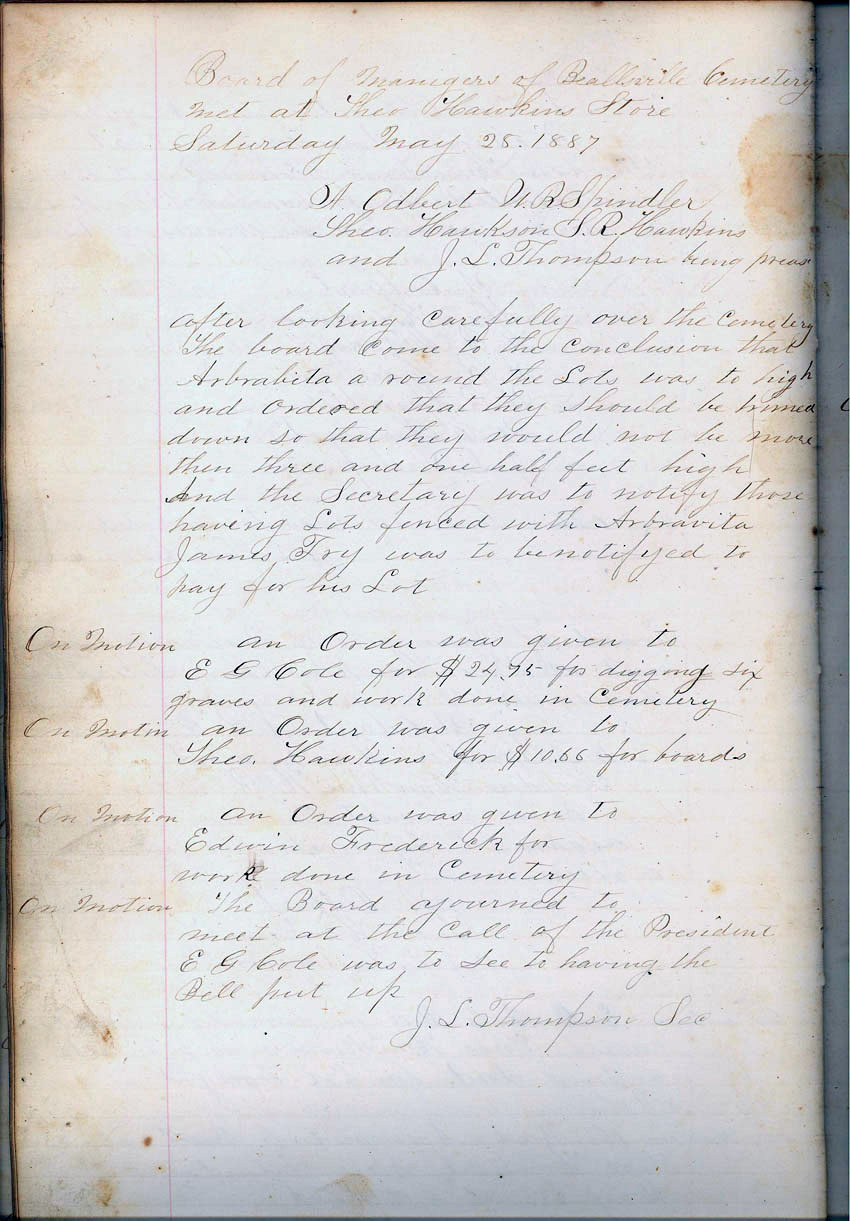 Board of Managers of Beallsville Cemetery
met at Theo Hawkins Store
Saturday May 28. 1887
A. Odbert W. R Spindler
Theo. Hawkson S. R. Hawkins
and J. L. Thompson being preas
after looking Carefully over the Cemetery
The board Come to the Conclusion that
Arbrabita a round the Lots was to high
and Ordered that they should be trimed
down so that they would not be more
then three and one half feet high
And the Secretary was to notify those
having Lots fenced with Arbravita
James Fry was to be notifyed to
pay for his Lot
On Motion an Order was given to
E G Cole for $24,75 for digging six
graves and work done in Cemetery
On Motin an Order was given to
Theo. Hawkins for $10.66 for boards
On Motion an Order was given to
Edwin Frederick for
work done in Cemetery
On Motion The Board ajourned to
meet at the Call of the President
E G Cole was to see to having the
Bell put up
J. L. Thompson Sec